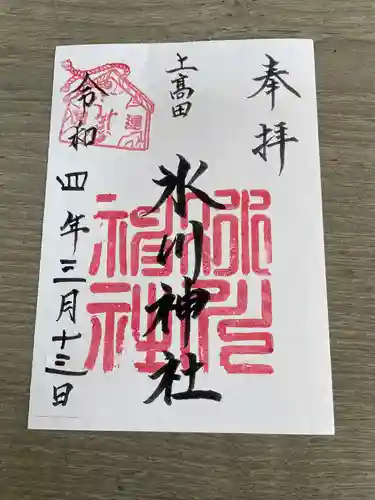 奉拝
上高田
氷川神社
令和四年三月十三日
氷川神社
開運